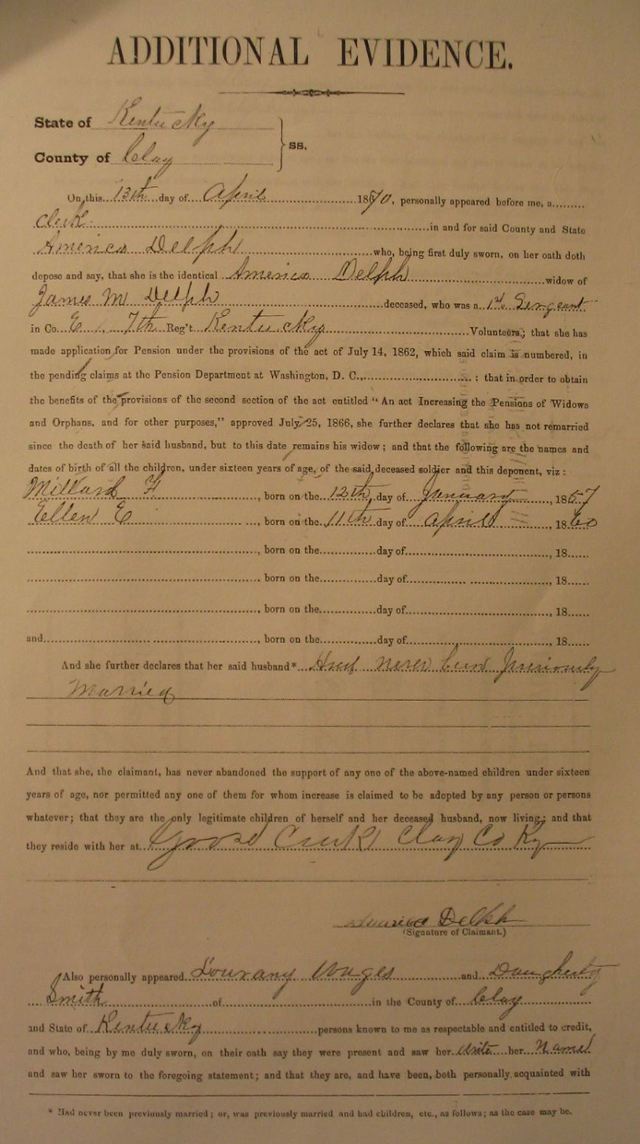 ADDITIONAL EVIDENCE.
State of Kentucky
County of Clay } ss.
On this 13th day of April 1870, personally appeared before me, a
Clerk in and for said County and State
America Delph who, being first duly sworn, on her oath doth
depose and say, that she is the identical America Delph widow of
James M Delph deceased, who was a 1st Sergeant
in Co. E, 7th Reg't Kentucky Volunteers; that she has
made application for Pension under the provisions of the act of July 14, 1862, which said claim is numbered, in
the pending claims at the Pension Department at Washington, D. C., : that in order to obtain
the benefits of the provisions of the second section of the act entitled "An act Increasing the Pensions of Widows
and Orphans, and for other purposes," approved July 25, 1866, she further declares that she has not remarried
since the death of her said husband, but to this date remains his widow; and that the following are the names and
dates of birth of all the children, under sixteen years of age, of the said deceased soldier and this deponent, viz:
Millard F , born on the 12th day of January , 1857
Ellen E , born on the 11th day of April , 1860
, born on the day of , 18
, born on the day of , 18
, born on the day of , 18
and , born on the day of , 18
And she further declares that her said husband* Had never been previously
Married
And that she, the claimant, has never abandoned the support of any one of the above-named children under sixteen
years of age, nor permitted any one of them for whom increase is claimed to be adopted by any person or persons
whatever; that they are the only legitimate children of herself and her deceased husband, now living; and that
they reside with her at Goose Creek Clay Co Ky
America Delph
(Signature of Claimant.)
Also personally appeared Lourany Wages and Daugherty
Smith of in the County of Clay
and State of Kentucky persons known to me as respectable and entitled to credit,
and who, being by me duly sworn, on their oath say they were present and saw her write her Name
and saw her sworn to the foregoing statement; and that they are, and have been, both personally acquainted with
* Had never been previously married; or, was previously married and had children, etc., as follows; as the case may be.